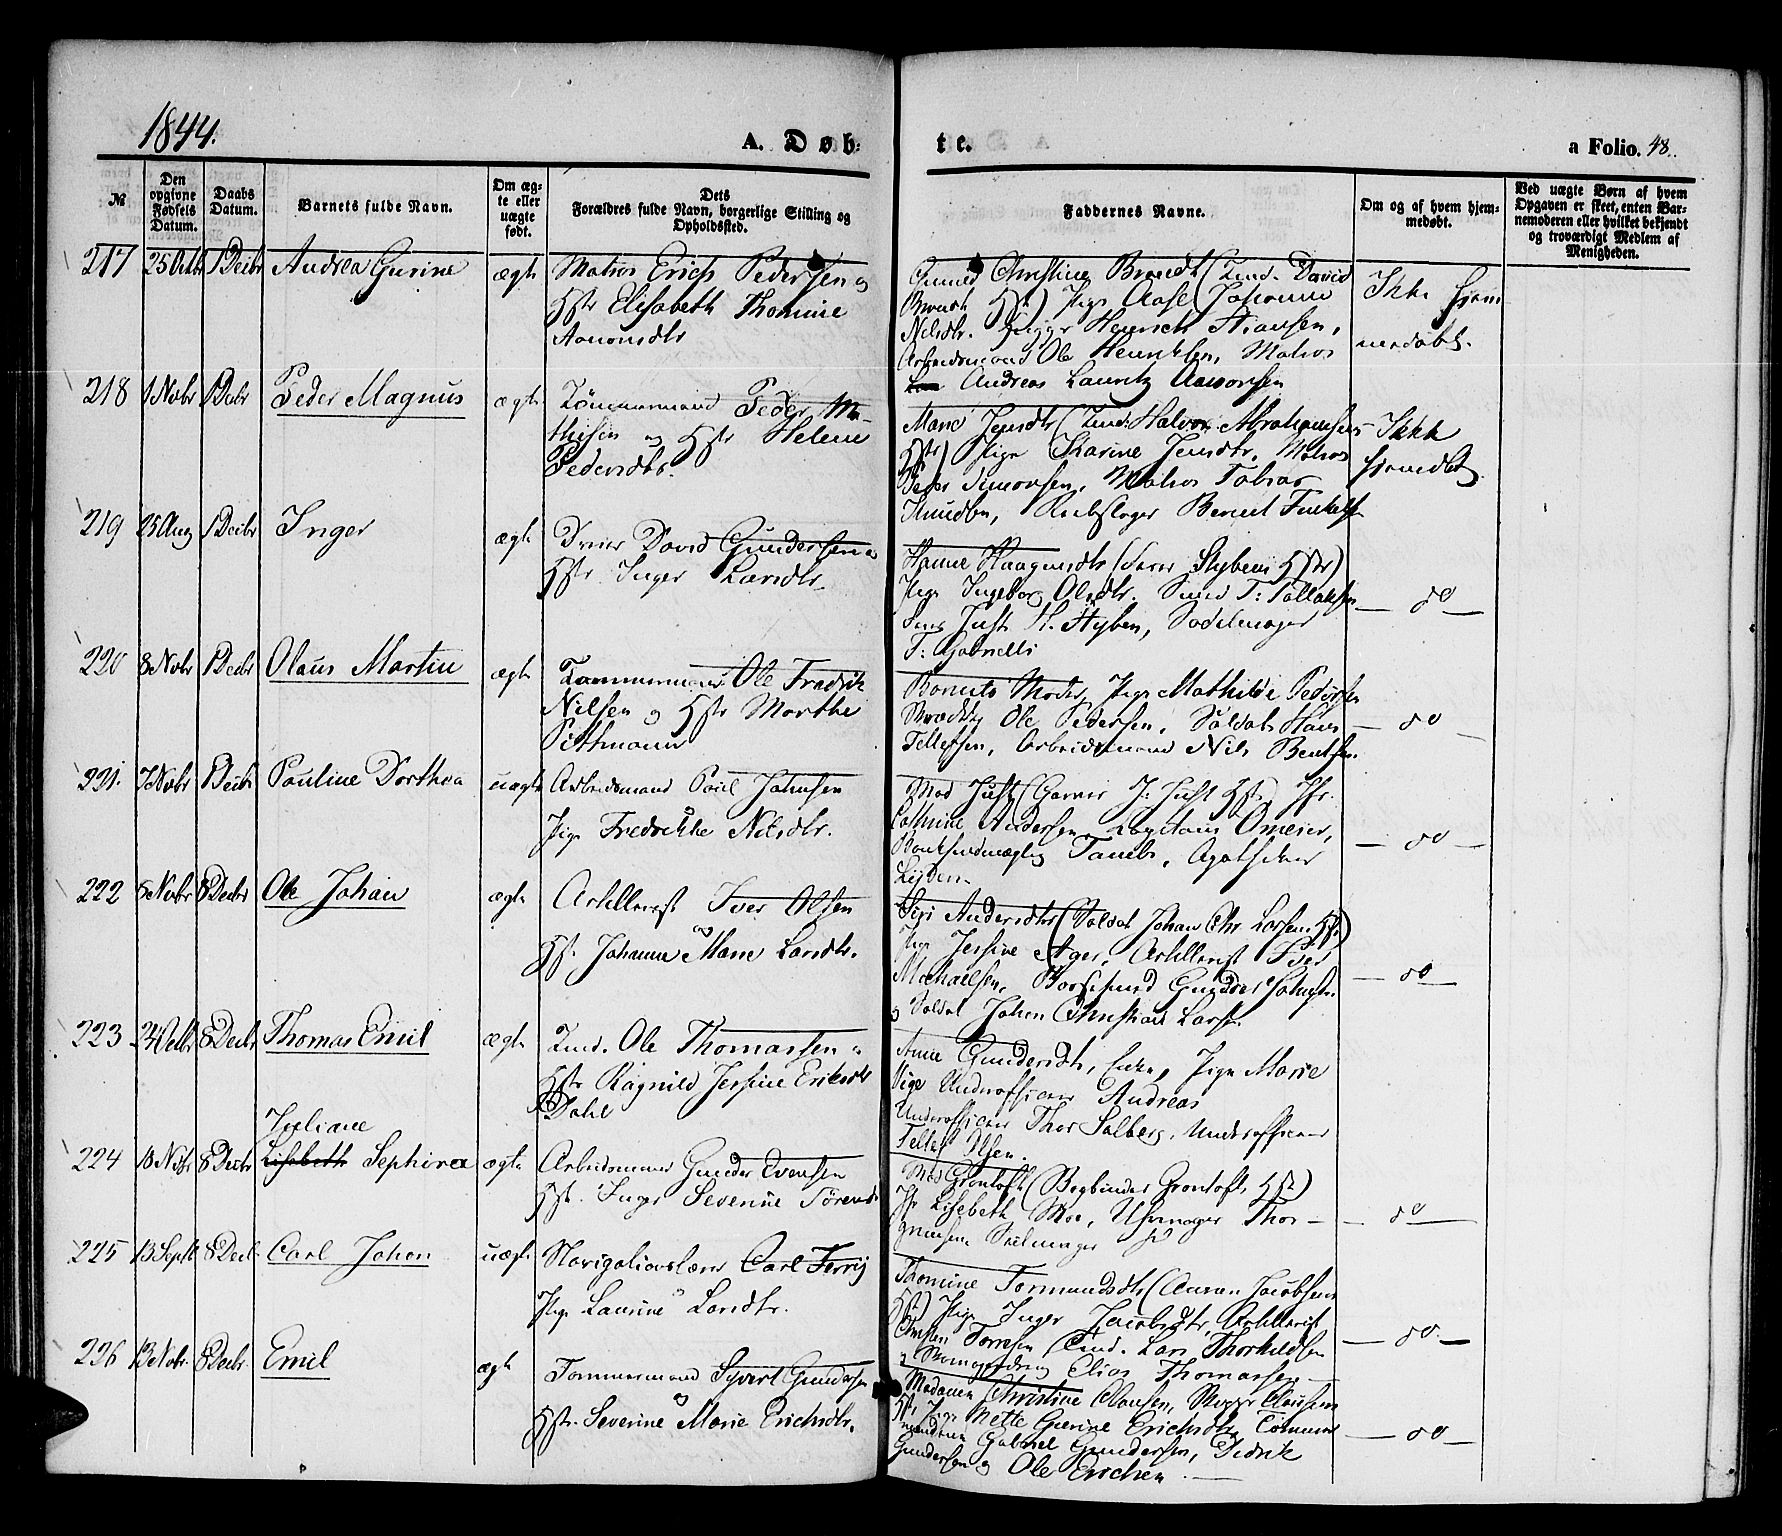 1844.
A. Døb-
te.
a Folio. 48.
№
Den opgivne Fødsels Datum.
Daabs Datum.
Barnets fulde Navn.
Om ægte eller uægte født.
Dets Forældres fulde Navn, borgerlige Stilling og Opholdssted.
Faddernes Navne.
Om og af hvem hjemmedøbt.
Ved uægte Børn af hvem Opgaven er skeet, enten Barnemoderen eller hvilket bekjendt og troværdigt Medlem af Menigheden.
217 25 Octb 1 Decbr Andrea Gurine ægte Matros Erich Pedersen og
Hstr Elisabeth Thomine
Aanonsdtr
Gunild Christine Brandt (Tmd. David
Brandt Hst) Pige Aase Johanne
Nilsdtr. Henrich Hansen,
Arbeidsmand Ole Henriksen, Matros
Andreas Lauritz Aanonsen
Ikke hjem
medøbt.
218 1 Novbr 1 Debr Peder Magnus ægte Tømmermand Peder Ma-
thisen og Hstr Helene
Pedersdtr.
Marie Jensdtr (Tmd: Halvor Abrahamsens
Hstr) Pige Karine Jensdtr. Matros
Peder Simonsen, Matros Tobias
Knudsen, Rebslager Berent
Ikke
hjemdbt
219 25 Aug 1 Decbr Inger ægte David Gundersen og
Hstr Inger Larsdtr.
Hanne Haagensdtr ( Styhens Hstr)
Pige Ingeborg Olsdtr. Smed T: Tallaksen
Just H. Styhen, Sadelmager
T: Gabrielli
do
220 8 Novbr 1 Decbr Olaus Martin ægte Tømmermand Ole Fredrik
Nilsen og Hstr Marthe
Pithmann
Barnets Moder, Pige Mathilde Pedersen
Ole Pedersen, Soldat Hans
Tellefsen, Arbeidsmand Nils Bentsen.
do
221. 7 Novbr 1 Decbr Pauline Dorthea uægte Arbeidsmand Poul Johnsen
Pige Fredrikke Nilsdtr.
Mad Just (Garver J: Just Hstr) Jfr.
Cathrine Andersen, Capitain Omeier,
Tambs, Apotheker
do
222 8 Novbr 8 Decbr Ole Johan ægte Artillerist Iver Olsen
og
Hst. Johanne Marie Larsdtr.
Siri Andersdtr (Soldat Johan Chr. Larsens Hst)
Pige Jessine Ager, Artillerist Iver
Michaelsen, Gunder
og Soldat Johan Christian Larsen
do
223 8 Decbr Thomas Emil ægte Tmd. Ole Thomassen og
Hstr Ragnild Jessine Eriksdtr
Dahl
Anne Gundersdtr, Enke, Pige Marie
Vige Underofficier Andreas
Underofficier Thor Solberg, Underofficier
Tellef Olsen.
Juliane
224 18 Novbr 8 Decbr Lisebeth Sephira ægte Arbeidsmand Gunder Evensen
Hst. Inger Severine Sørensd
Mad Grontoft (Bogbinder Grontoft Hst)
Jfr Lisebeth Moe, Uhrmager Thor-
do
225 13 Septb 8 Decb. Carl Johan uægte Navigationslærer Carl Ferrij
Pige Laurine Larsdtr.
Thomine Tormundsdtr (Aanon Jacobsens
Hst) Pige Inger Jacobsdtr, Artillerist
Christen Torresen, Tmd. Lars Thorkildsen
og Elias Thomassen
do
226 13 Novbr. 8 Decbr. Emil ægte Tømmermand Syvert Gundersen
og
Hstr. Severine Marie Erichsdtr.
Madame Christine Clausen, Clausens
Hst, Pige Mette Gurine Erichsdtr, Tømmer
mændene Gabriel Gundersen, Didrik
Gundersen og Ole Erichsen.
do